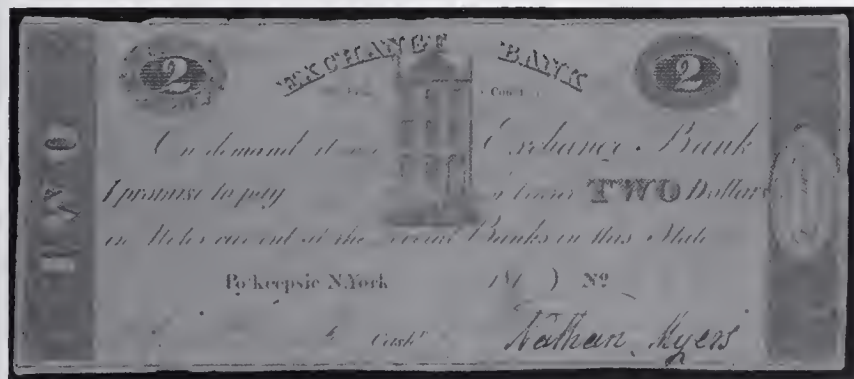 2 EXCHANGE BANK 2
On demand at my Exchange Bank
I promise to pay or bearer TWO Dollars
in Notes current at the several Banks in this State
Po'keepsie N.York 181 ) No
Cashr Nathan Myers
TWO